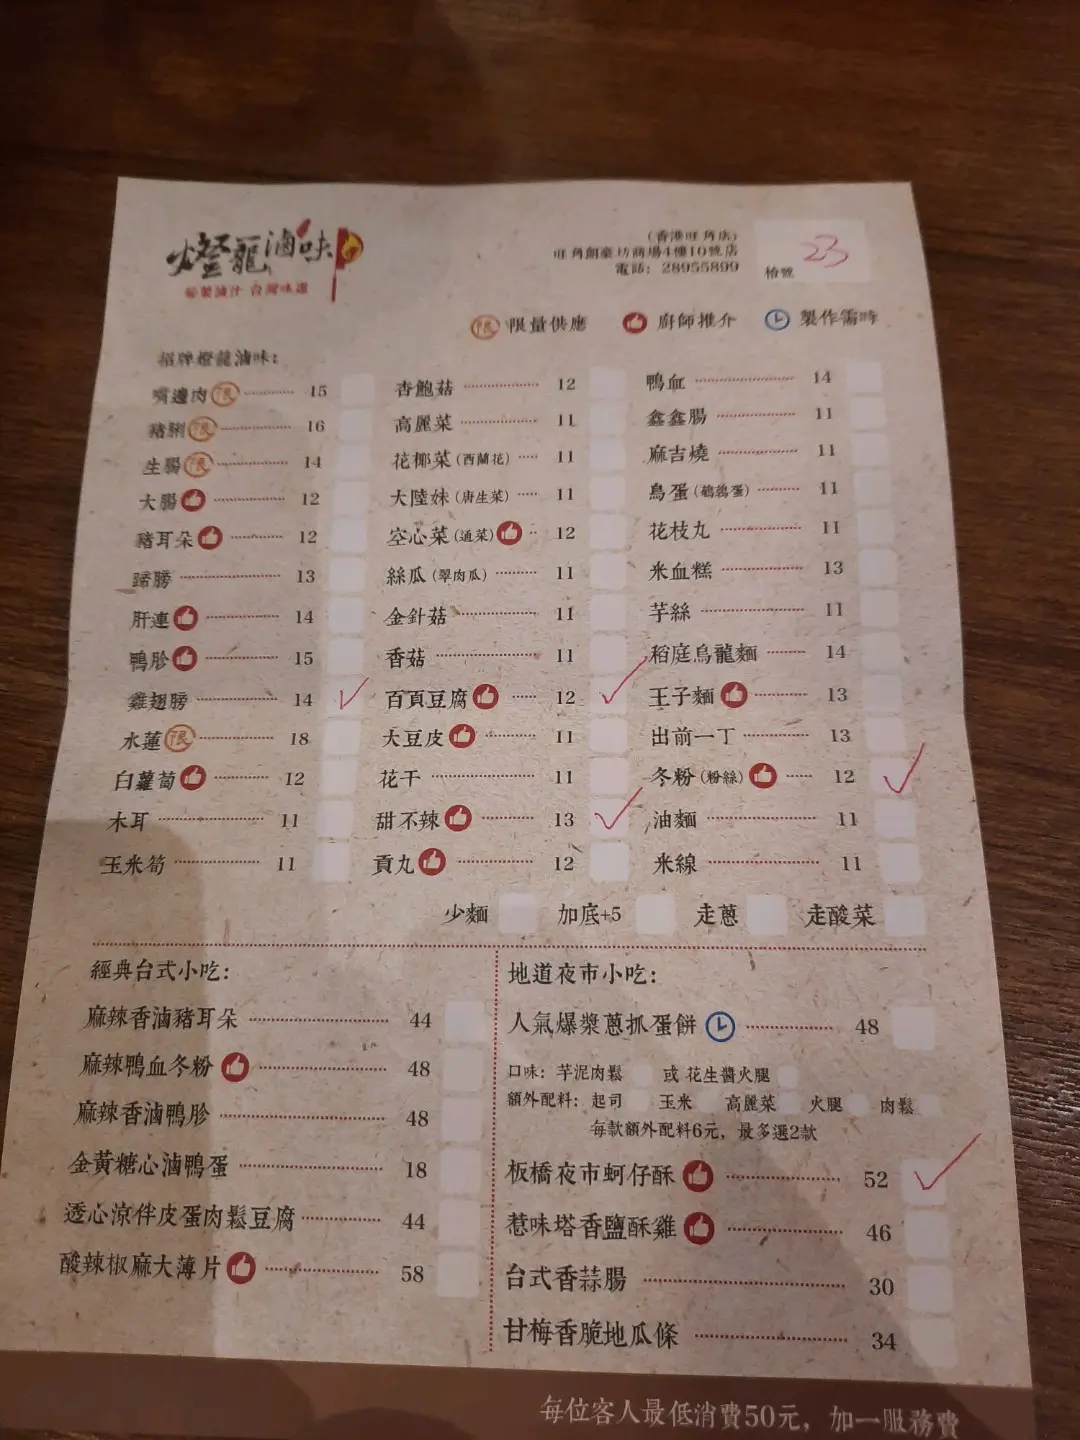 燈籠滷味
秘製滷汁 台灣味道
(香港旺角店)
旺角創豪坊商場4樓10號店
電話: 28955899
枱號 23
限 限量供應 廚師推介 製作需時
招牌燈籠滷味:
嘴邊肉 限 15
豬脷 限 16
生腸 限 14
大腸 12
豬耳朵 12
蹄膀 13
肝連 14
鴨胗 15
雞翅膀 14
水蓮 限 18
白蘿蔔 12
木耳 11
玉米筍 11
杏鮑菇 12
高麗菜 11
花椰菜(西蘭花) 11
大陸妹(唐生菜) 11
空心菜(通菜) 12
絲瓜(翠肉瓜) 11
金針菇 11
香菇 11
百頁豆腐 12
大豆皮 11
花干 11
甜不辣 13
貢丸 12
鴨血 14
鑫鑫腸 11
麻吉燒 11
鳥蛋(鵪鶉蛋) 11
花枝丸 11
米血糕 13
芋絲 11
稻庭烏龍麵 14
王子麵 13
出前一丁 13
冬粉(粉絲) 12
油麵 11
米線 11
少麵 加底+5 走蔥 走酸菜
經典台式小吃:
麻辣香滷豬耳朵 44
麻辣鴨血冬粉 48
麻辣香滷鴨胗 48
金黃糖心滷鴨蛋 18
透心涼伴皮蛋肉鬆豆腐 44
酸辣椒麻大薄片 58
地道夜市小吃:
人氣爆漿蔥抓蛋餅 48
口味: 芋泥肉鬆 或 花生醬火腿
額外配料: 起司 玉米 高麗菜 火腿 肉鬆
每款額外配料6元, 最多選2款
板橋夜市蚵仔酥 52
惹味塔香鹽酥雞 46
台式香蒜腸 30
甘梅香脆地瓜條 34
每位客人最低消費50元, 加一服務費